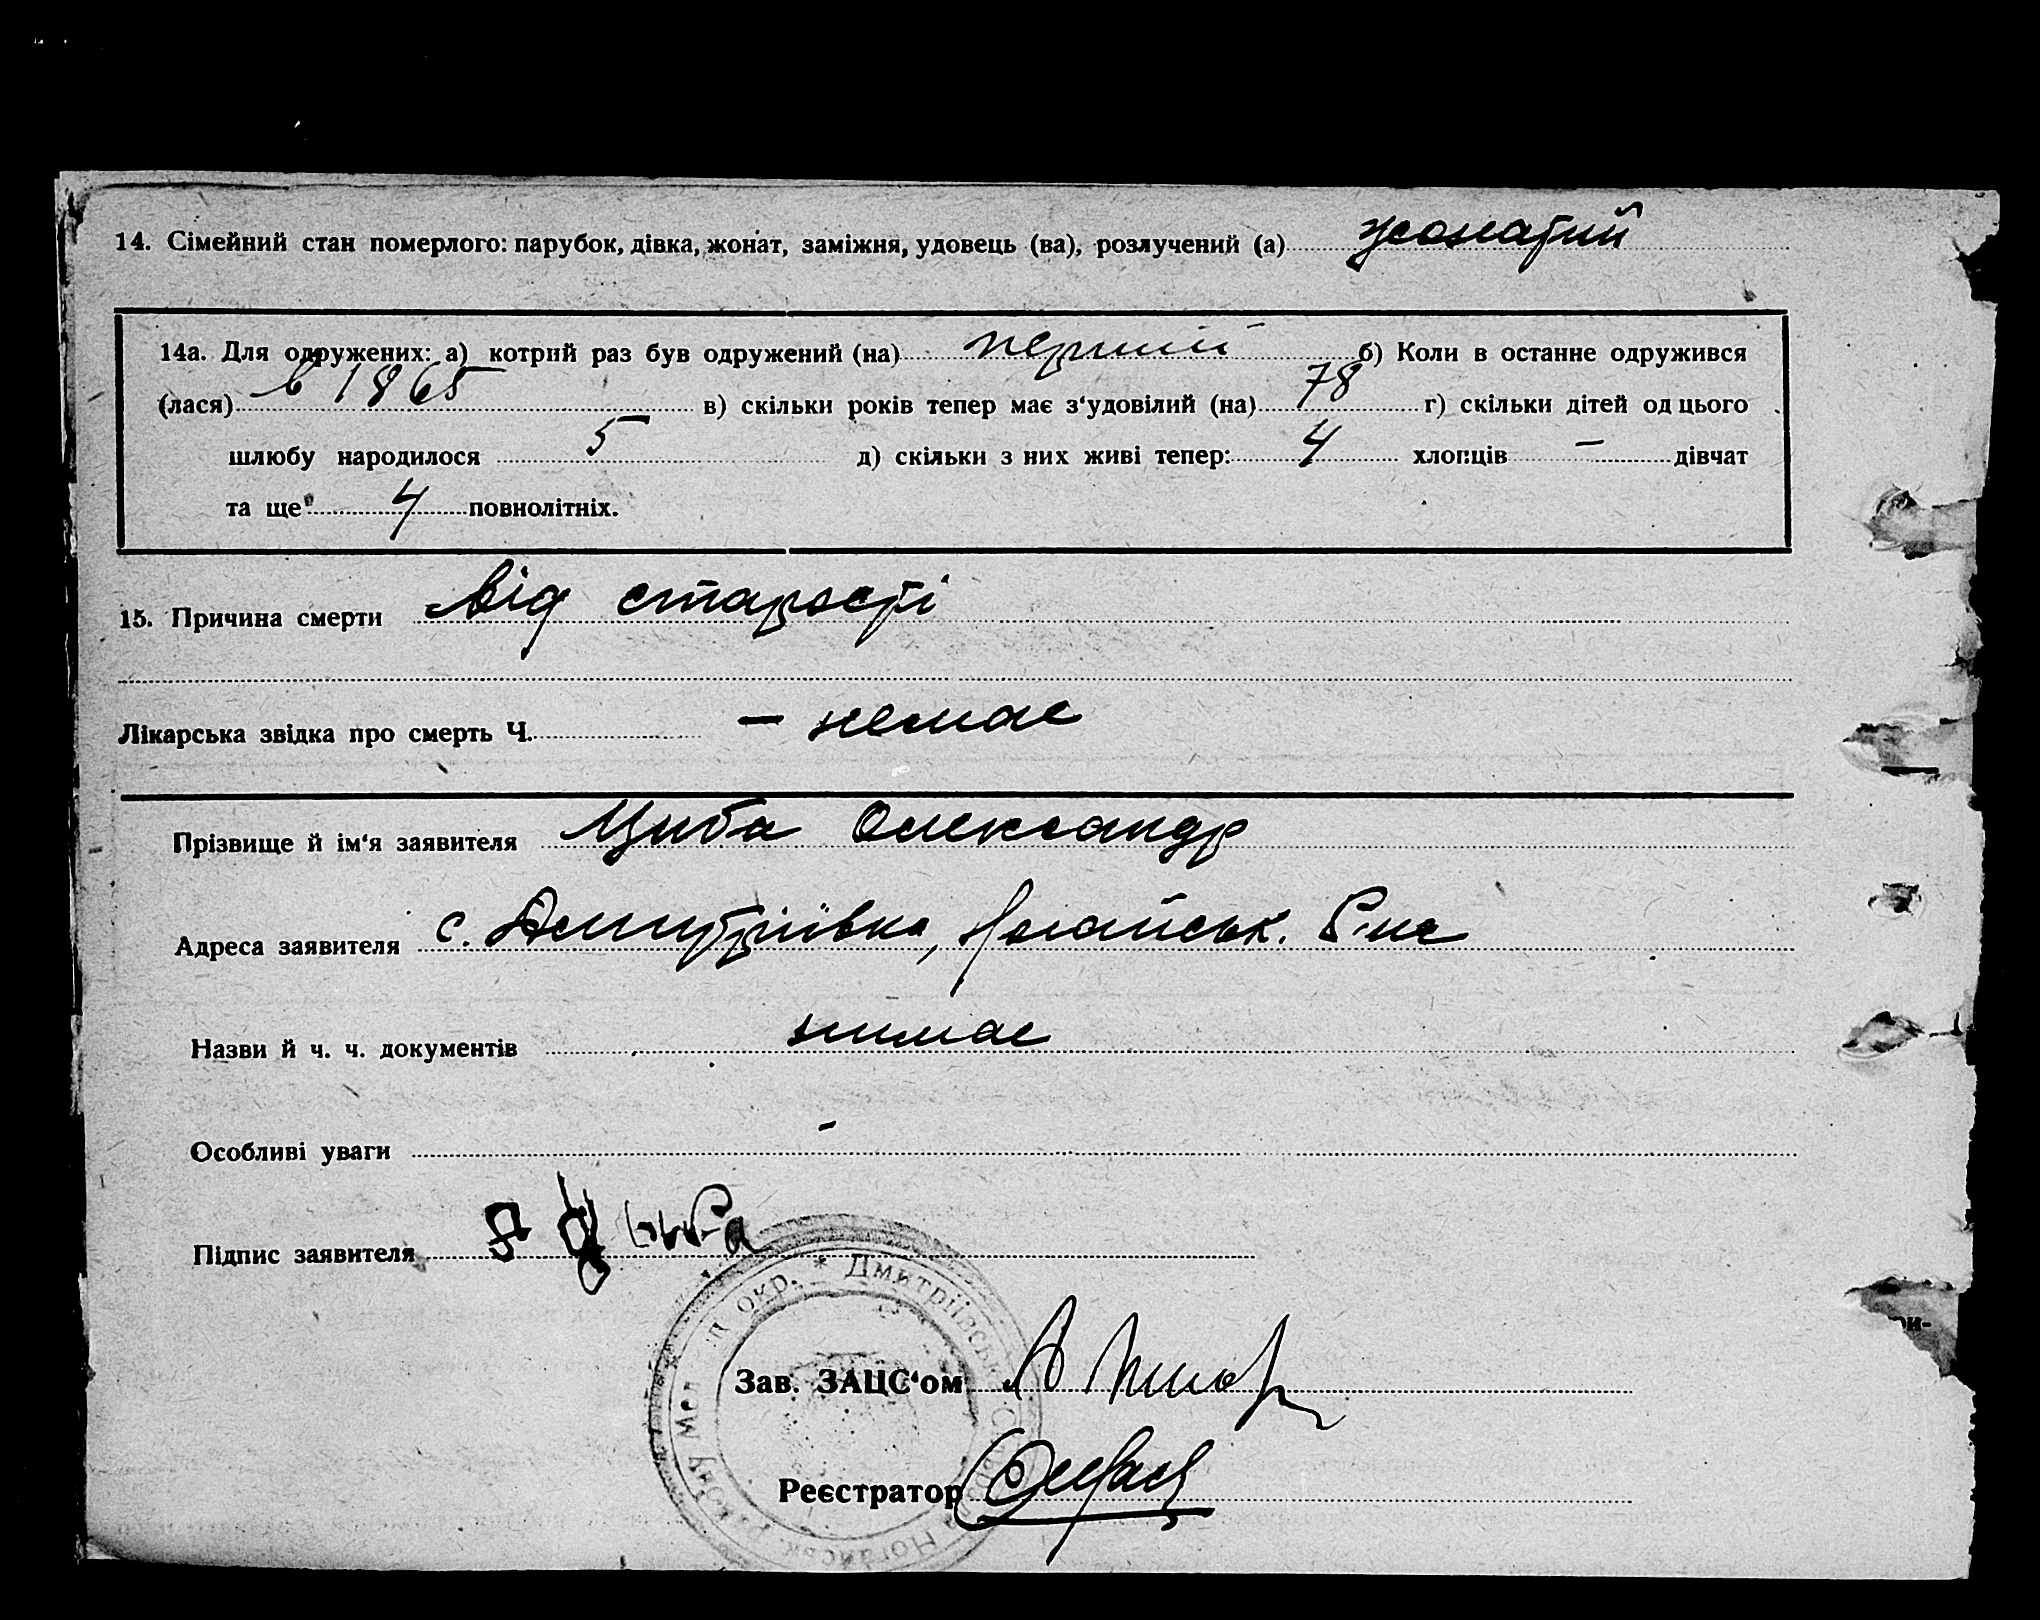 14. Сімейний стан померлого: парубок, дівка, жонат, заміжня, удовець (ва), розлучений (а) жонатий
14а. Для одружених: а) котрий раз був одружений (на) перший б) Коли в останнє одружився
(лася) в 1865 в) скільки років тепер має з‘удовілий (на) 78 г) скільки дітей од цього
шлюбу народилося 5 д) скільки з них живі тепер: 4 хлопців — дівчат
та ще 4 повнолітніх.
15. Причина смерти від старості
Лікарська звідка про смерть Ч. — немає
Прізвище й ім‘я заявителя Циба Олександр
Адреса заявителя с. Дмитріївка, Ногайськ. Р-на
Назви й ч. ч. документів нимає
Особливі уваги -
Підпис заявителя Циба
* Дмитріївська Ногайськ. району Мел окр.
Зав. ЗАЦС‘ом
Реєстратор
ри-